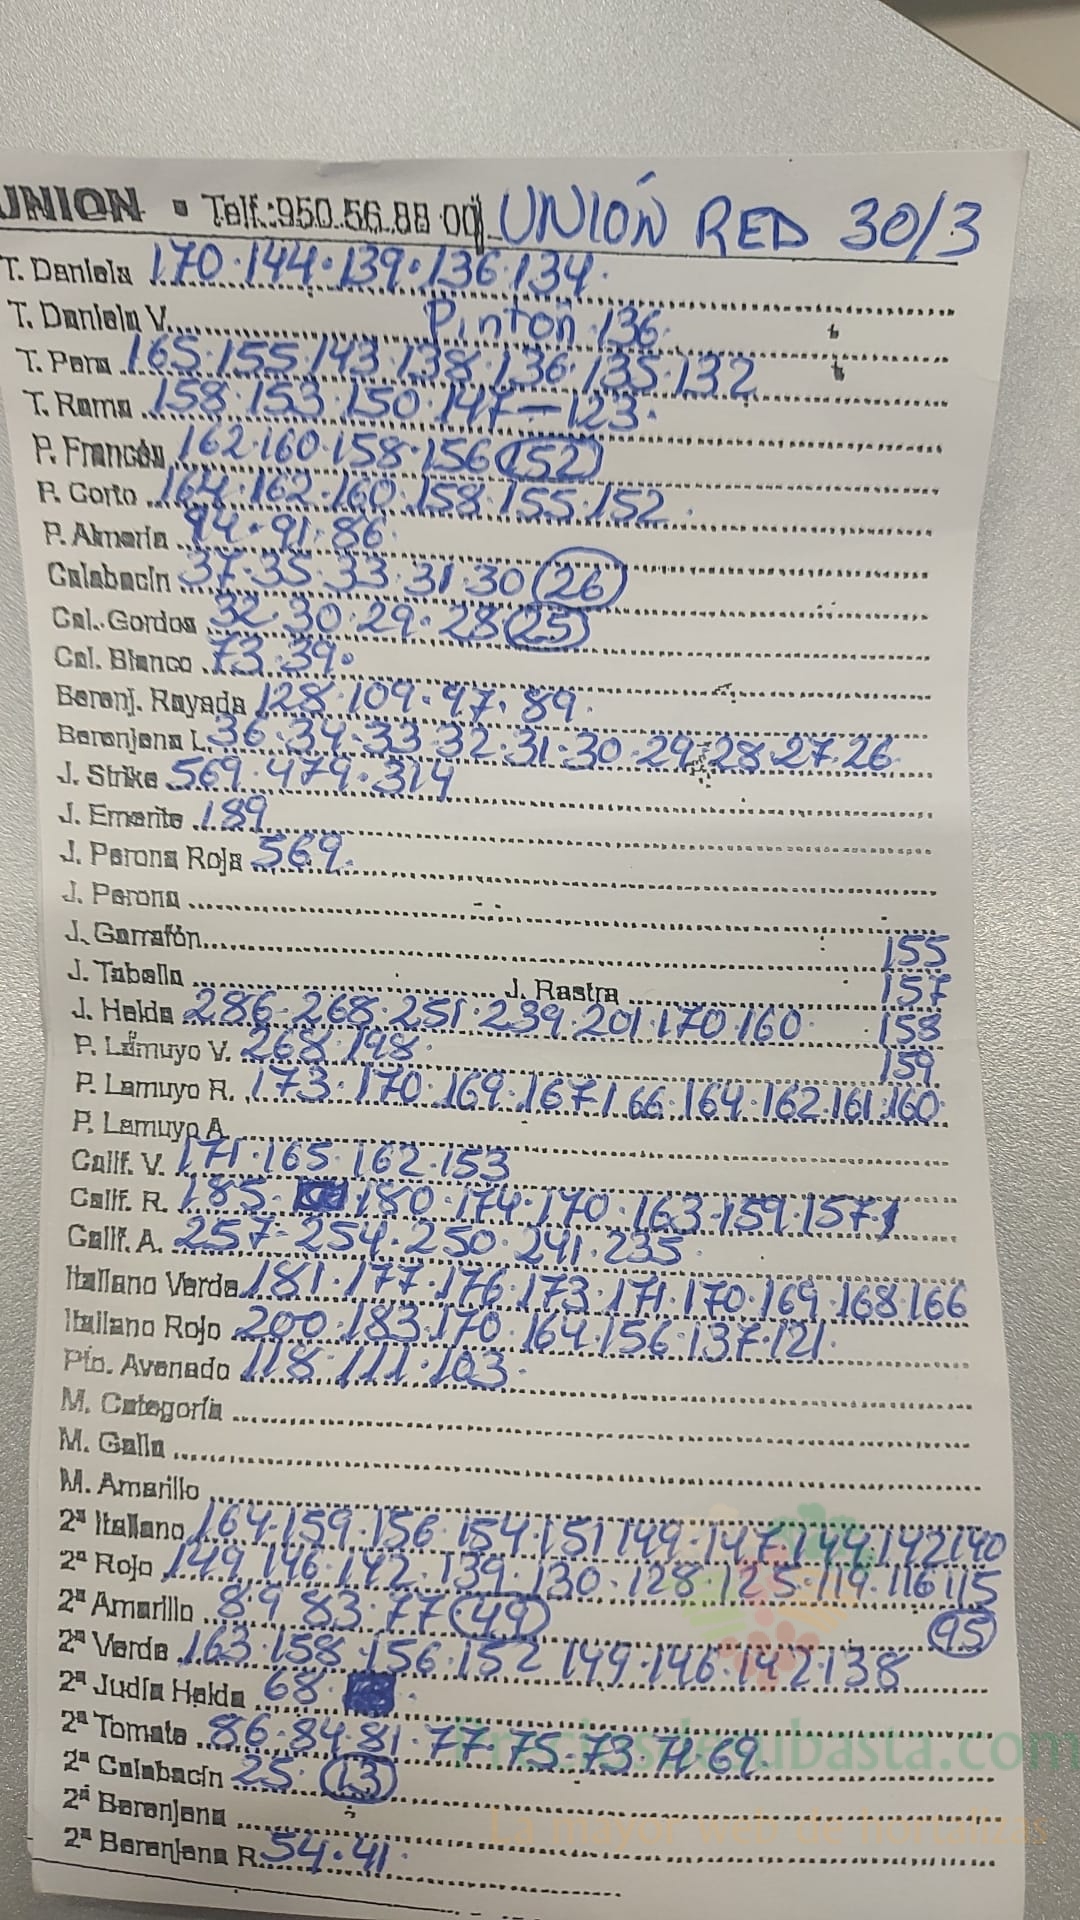 UNION · Telf.:950.56.88 00 UNIÓN RED 30/3
T. Daniela 170·144·139·136·134·
T. Daniela V. Pintón 136
T. Pera 165·155·143·138·136·135·132
T. Rama 158·153·150·147—123·
P. Francés 162·160·158·156 (152)
P. Corto 164·162·160·158·155·152
P. Almería 94·91·86
Calabacín 37·35·33·31·30 (26)
Cal. Gordos 32·30·29·28 (25)
Cal. Blanco 73·39·
Berenj. Rayada 128·109·97·89·
Berenjena L. 36·34·33·32·31·30·29·28·27·26
J. Strike 569·479·314
J. Emerite 189
J. Perona Roja 569·
J. Perona
J. Garrafón 155
J. Tabella J. Rastra 157
J. Helda 286·268·251·239·201·170·160 158
P. Lamuyo V. 268·198· 159
P. Lamuyo R. 173·170·169·167·166·164·162·161·160·
P. Lamuyo A
Calif. V. 171·165·162·153
Calif. R. 185·180·174·170·163·159·157
Calif. A. 257·254·250·241·235
Italiano Verde 181·177·176·173·171·170·169·168·166
Italiano Rojo 200·183·170·164·156·137·121·
Pto. Avenado 118·111·103·
M. Categoría
M. Galia
M. Amarillo
2ª Italiano 164·159·156·154·151 149·147·144·142 140
2ª Rojo 149·146·142·139·130·128·125·119·116 115
2ª Amarillo 89 83·77 (49) (95)
2ª Verde 163·158·156·152 149·146·142·138
2ª Judía Helda 68
2ª Tomate 86·84·81·77·75·73·71·69
2ª Calabacín 25· (13)
2ª Berenjena
2ª Berenjena R. 54·41·
Preciosdesubasta.com
La mayor web de hortalizas